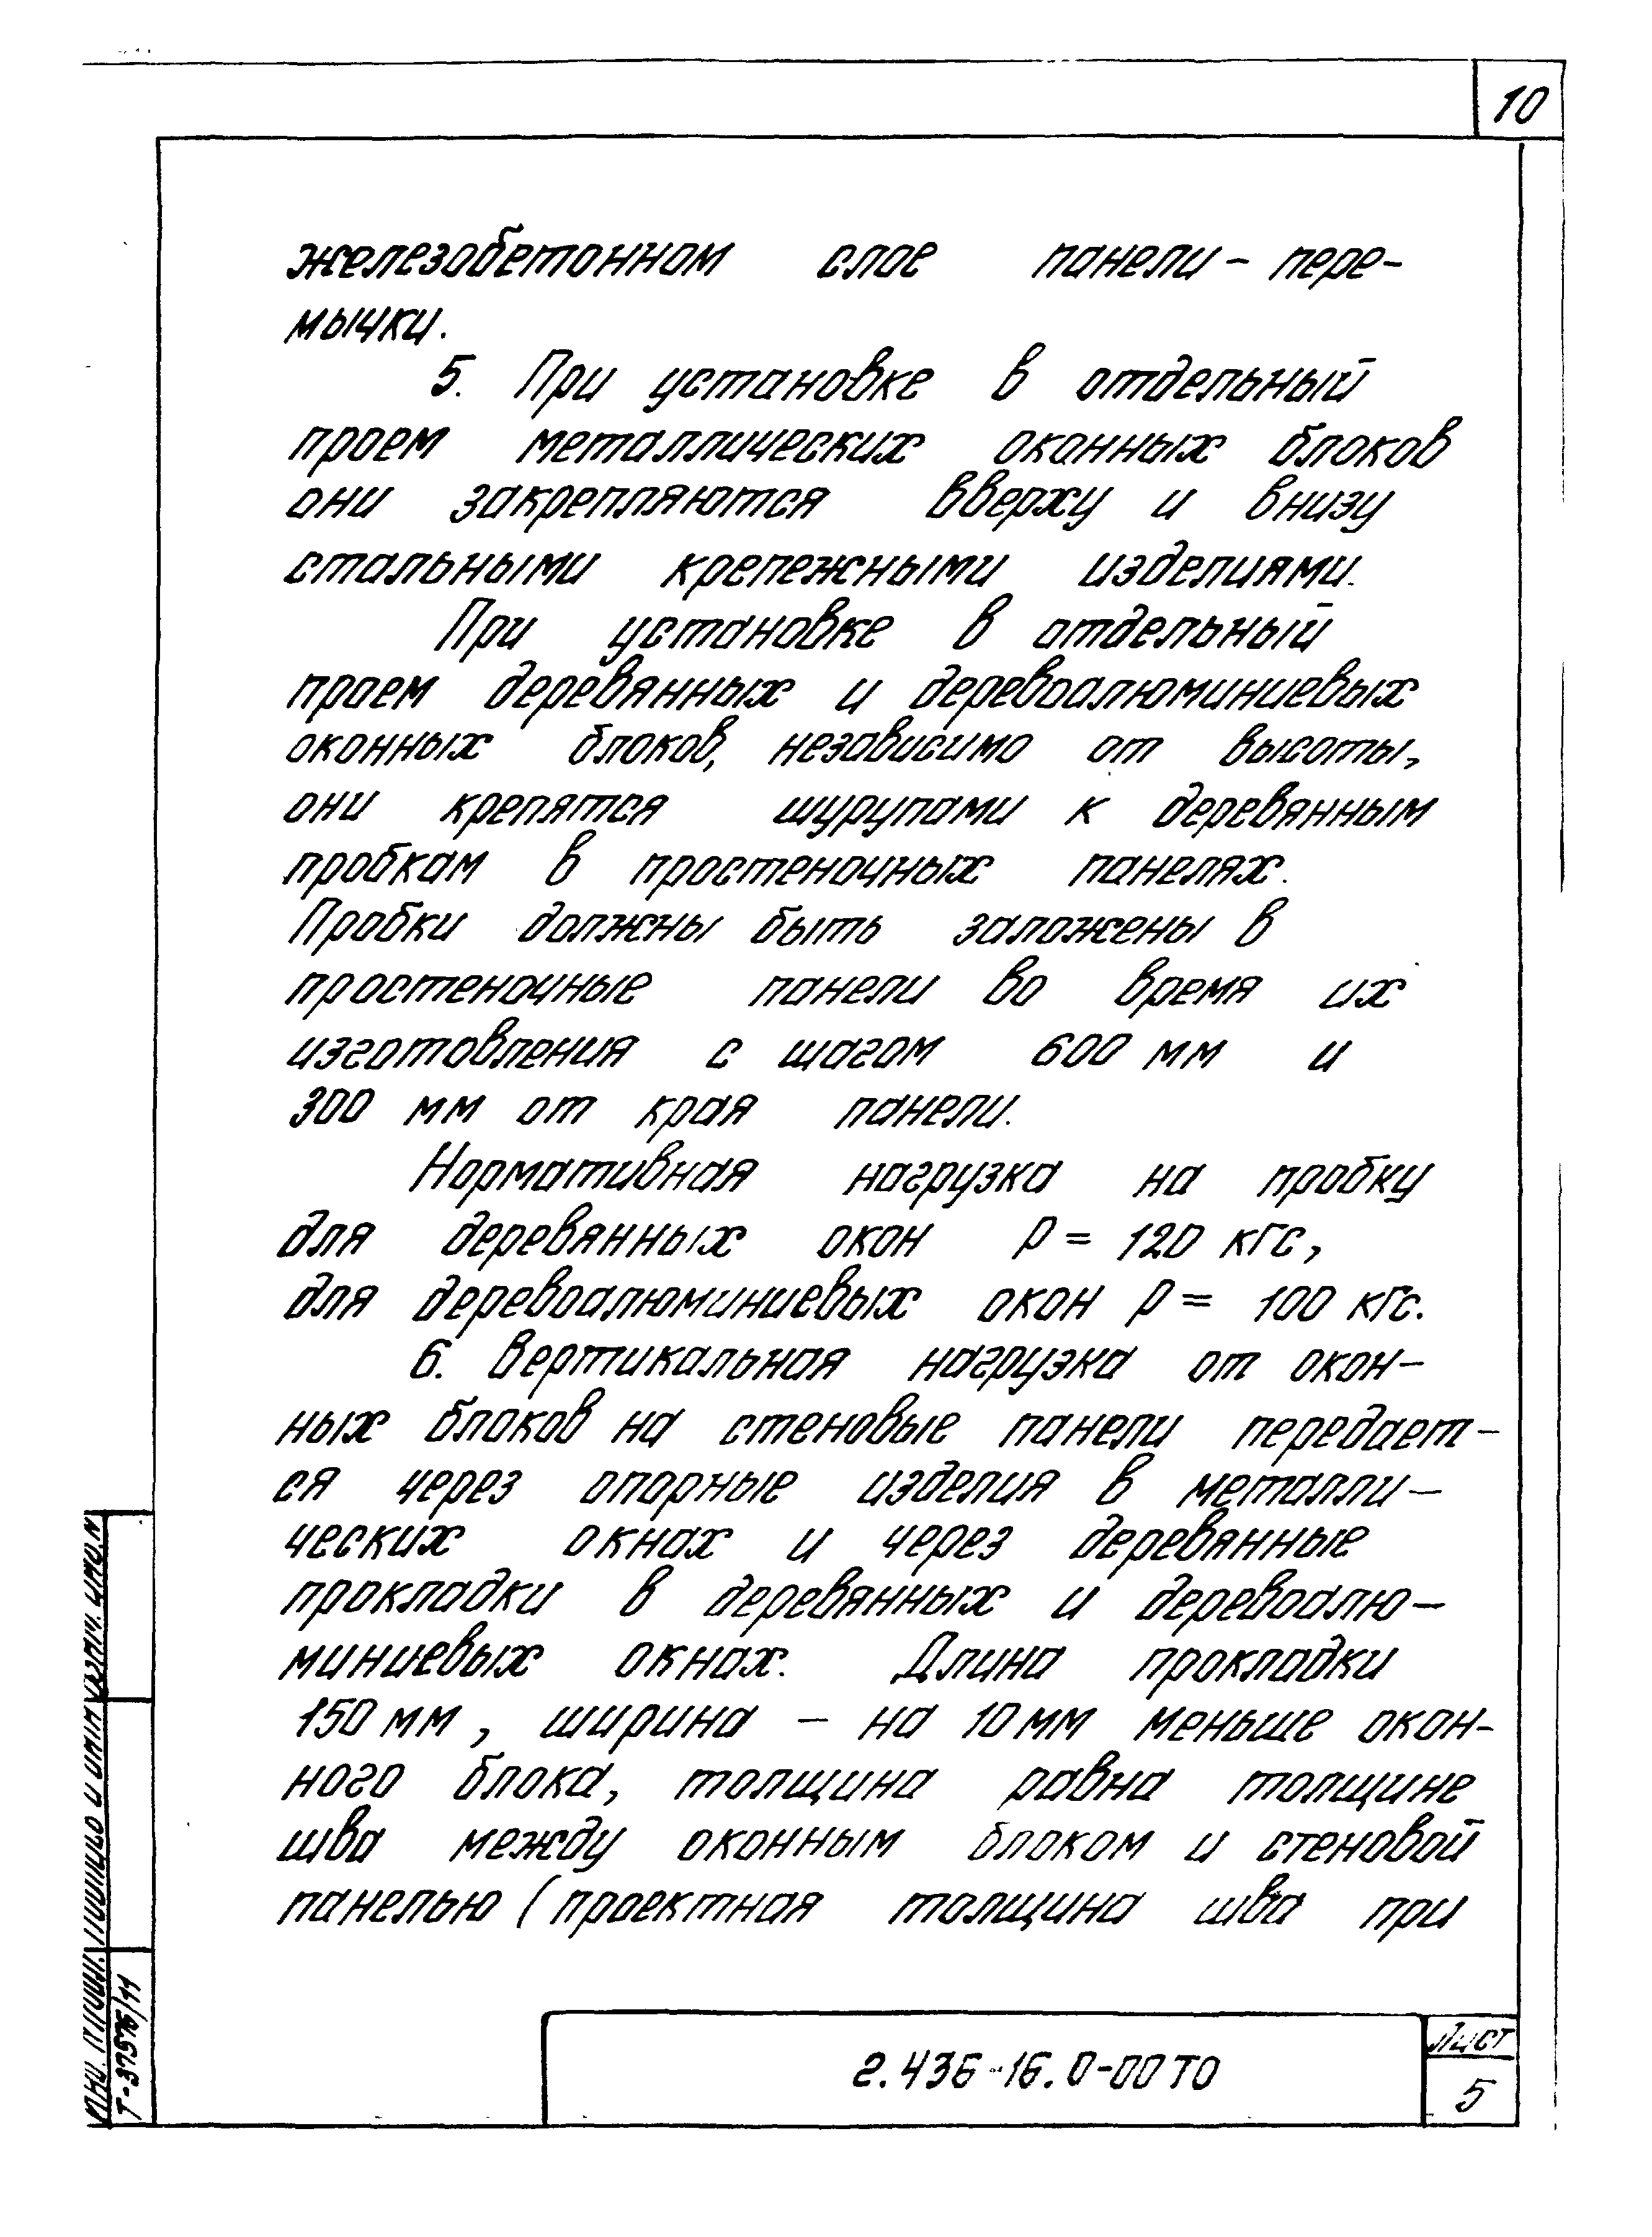 10
железобетонном слое панели - пере-
мычки.
5. При установке в отдельный
проем металлических оконных блоков
они закрепляются вверху и внизу
стальными крепежными изделиями.
При установке в отдельный
проем деревянных и деревоалюминиевых
оконных блоков, независимо от высоты,
они крепятся шурупами к деревянным
пробкам в простеночных панелях.
Пробки должны быть заложены в
простеночные панели во время их
изготовления с шагом 600 мм и
300 мм от края панели.
Нормативная нагрузка на пробку
для деревянных окон Р = 120 кГс,
для деревоалюминиевых окон Р = 100 кГс.
6. Вертикальная нагрузка от окон-
ных блоков на стеновые панели передает-
ся через опорные изделия в металли-
ческих окнах и через деревянные
прокладки в деревянных и деревоалю-
миниевых окнах. Длина прокладки
150 мм, ширина - на 10 мм меньше окон-
ного блока, толщина равна толщине
шва между оконным блоком и стеновой
панелью (проектная толщина шва при
2.436-16.0-00 ТО
Лист
5
Т-37575/11